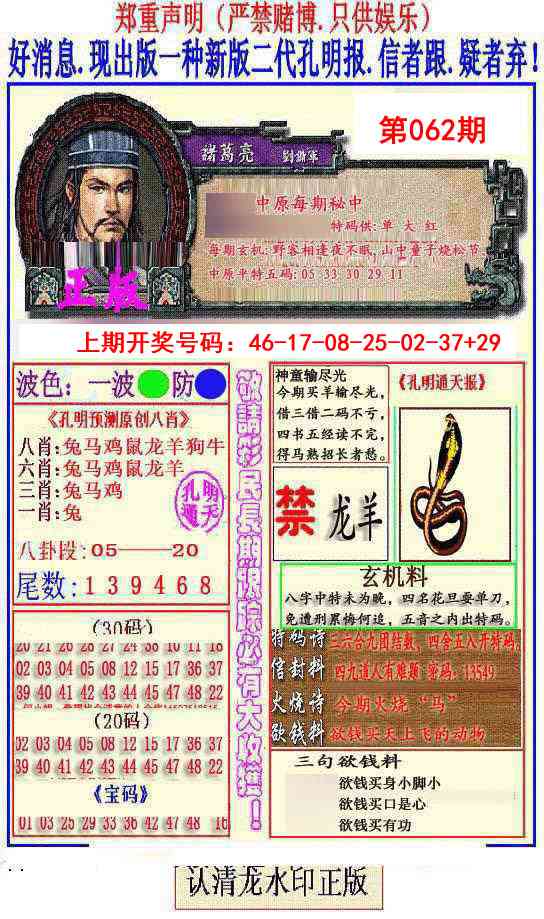 郑重声明（严禁赌博.只供娱乐）
好消息.现出版一种新版二代孔明报.信者跟.疑者弃！
第062期
諸葛亮 劉備軍
中原每期秘中
特码供:单 大 红
每期玄机:野客相逢夜不眠,山中童子烧松节
中原平特五码:05 33 30 29 11
正版
上期开奖号码：46-17-08-25-02-37+29
波色：一波 防
《孔明预测原创八肖》
八肖:兔马鸡鼠龙羊狗牛
六肖:兔马鸡鼠龙羊
三肖:兔马鸡
一肖:兔
孔明
通天
八卦段:05——20
尾数:139468
(30码)
20 21 26 28 27 24 38 10 11 18
02 03 04 05 08 12 15 17 36 37
39 40 41 42 43 44 45 47 48 22
(20码)
02 03 04 05 08 12 15 17 36 37
39 40 41 42 43 44 45 47 48 22
《宝码》
01 03 25 29 33 36 42 47 48 16
敬請彩民長期跟踪必有大收獲！
神童输尽光
今期买羊输尽光,
借三借二码不亏,
四书五经读不完,
得马熟招长者愁。
《孔明通天报》
禁 龙羊
玄机料
八字中特未为晚，四名花旦耍单刀，
免遭刑累悔何追，五音之内出特码。
特码诗 三六合九团结数，四舍五入开特码。
信封料 四九道人有难题 密码：13549
火烧诗 今期火烧“马”
欲钱料 欲钱买天上飞的动物
三句欲钱料
欲钱买身小脚小
欲钱买口是心
欲钱买有功
认清龙水印正版